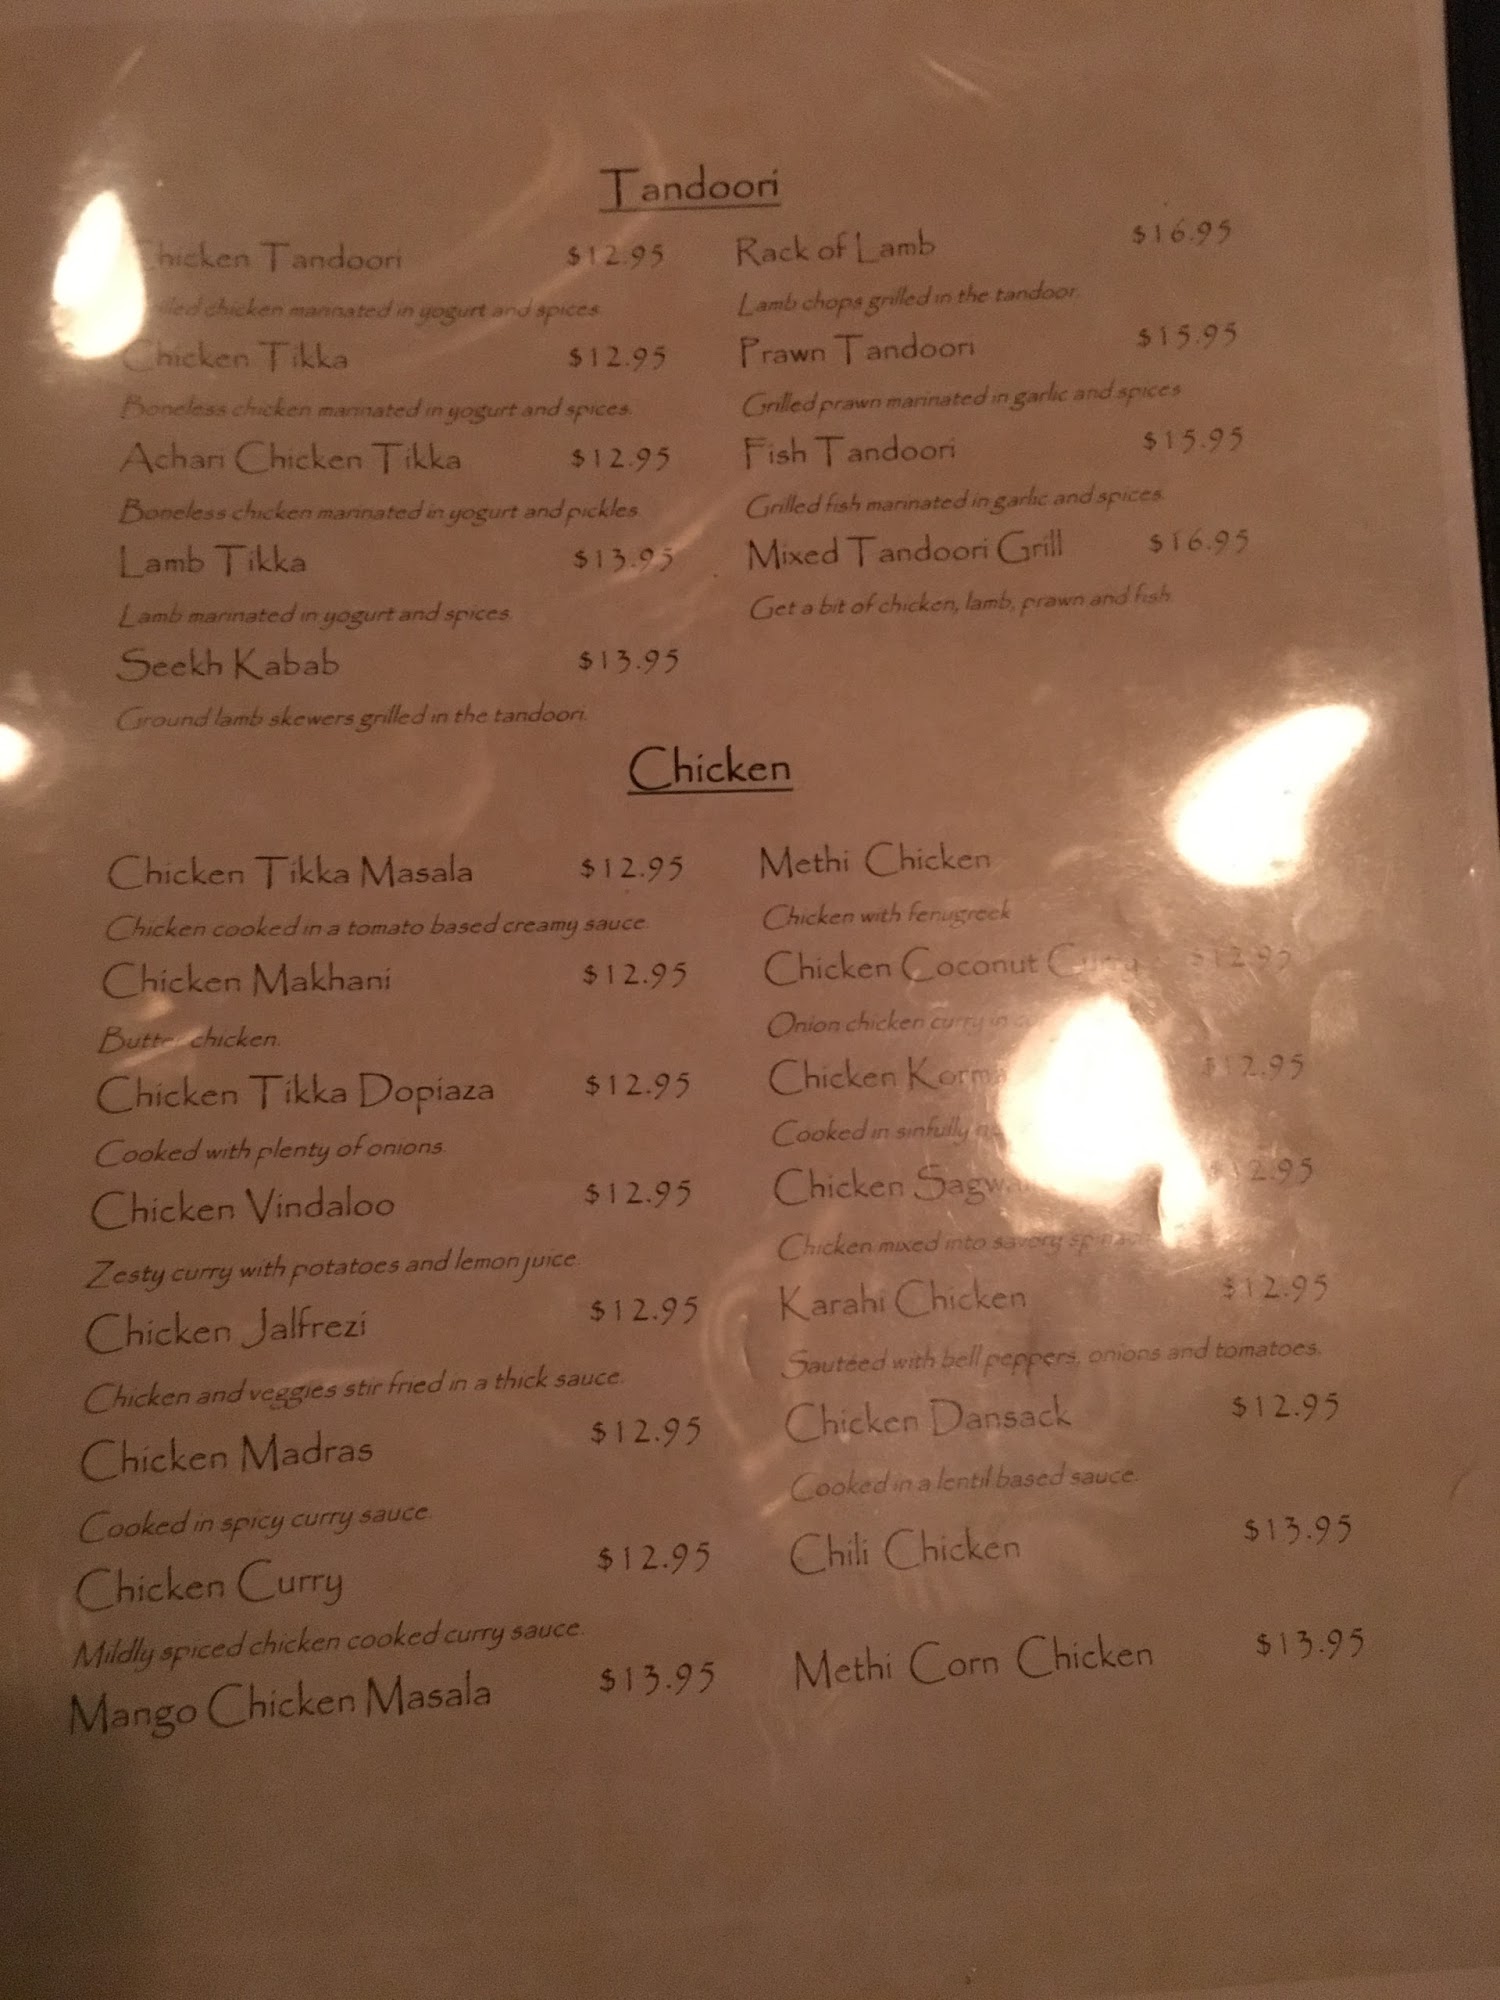 Tandoori
Chicken Tandoori $12.95
chicken marinated in yogurt and spices.
Chicken Tikka $12.95
Boneless chicken marinated in yogurt and spices.
Achari Chicken Tikka $12.95
Boneless chicken marinated in yogurt and pickles.
Lamb Tikka $13.95
Lamb marinated in yogurt and spices.
Seekh Kabab $13.95
Ground lamb skewers grilled in the tandoori.
Rack of Lamb $16.95
Lamb chops grilled in the tandoor.
Prawn Tandoori $15.95
Grilled prawn marinated in garlic and spices
Fish Tandoori $15.95
Grilled fish marinated in garlic and spices.
Mixed Tandoori Grill $16.95
Get a bit of chicken, lamb, prawn and fish.
Chicken
Chicken Tikka Masala $12.95
Chicken cooked in a tomato based creamy sauce.
Chicken Makhani $12.95
Butter chicken.
Chicken Tikka Dopiaza $12.95
Cooked with plenty of onions.
Chicken Vindaloo $12.95
Zesty curry with potatoes and lemon juice.
Chicken Jalfrezi $12.95
Chicken and veggies stir fried in a thick sauce.
Chicken Madras $12.95
Cooked in spicy curry sauce.
Chicken Curry $12.95
Mildly spiced chicken cooked curry sauce.
Mango Chicken Masala $13.95
Methi Chicken
Chicken with fenugreek
Chicken Coconut Curry $12.95
Onion chicken curry in
Chicken Korma $12.95
Cooked in sinfully
Chicken $12.95
Chicken mixed into savory
Karahi Chicken $12.95
Sautéed with bell peppers, onions and tomatoes.
Chicken Dansack $12.95
Cooked in a lentil based sauce.
Chili Chicken $13.95
Methi Corn Chicken $13.95